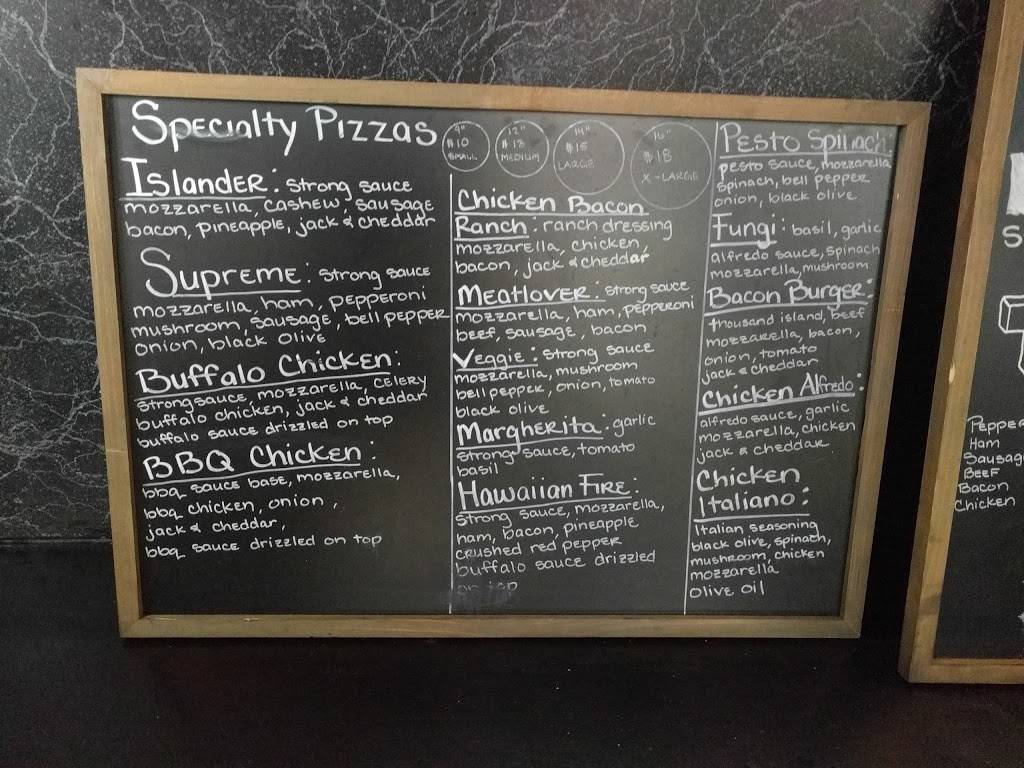 Specialty Pizzas
9"
$10
SMALL
12"
$13
MEDIUM
14"
$15
LARGE
16"
$18
X-LARGE
Islander: strong sauce
mozzarella, cashew, sausage
bacon, pineapple, jack & cheddar
Supreme: strong sauce
mozzarella, ham, pepperoni
mushroom, sausage, bell pepper
onion, black olive
Buffalo Chicken:
strong sauce, mozzarella, celery
buffalo chicken, jack & cheddar
buffalo sauce drizzled on top
BBQ Chicken:
bbq sauce base, mozzarella,
bbq chicken, onion,
jack & cheddar,
bbq sauce drizzled on top
Chicken Bacon
Ranch: ranch dressing
mozzarella, chicken,
bacon, jack & cheddar
Meatlover: strong sauce
mozzarella, ham, pepperoni
beef, sausage, bacon
Veggie: strong sauce
mozzarella, mushroom
bell pepper, onion, tomato
black olive
Margherita: garlic
strong sauce, tomato
basil
Hawaiian Fire:
strong sauce, mozzarella,
ham, bacon, pineapple
crushed red pepper
buffalo sauce drizzled
on top
Pesto Spinach:
pesto sauce, mozzarella
spinach, bell pepper
onion, black olive
Fungi: basil, garlic
alfredo sauce, spinach
mozzarella, mushroom
Bacon Burger:
thousand island, beef
mozzarella, bacon,
onion, tomato
jack & cheddar
Chicken Alfredo:
alfredo sauce, garlic
mozzarella, chicken
jack & cheddar
Chicken
Italiano:
Italian seasoning
black olive, spinach,
mushroom, chicken
mozzarella
olive oil
S
Peppe
Ham
Sausag
Beef
Bacon
Chicken